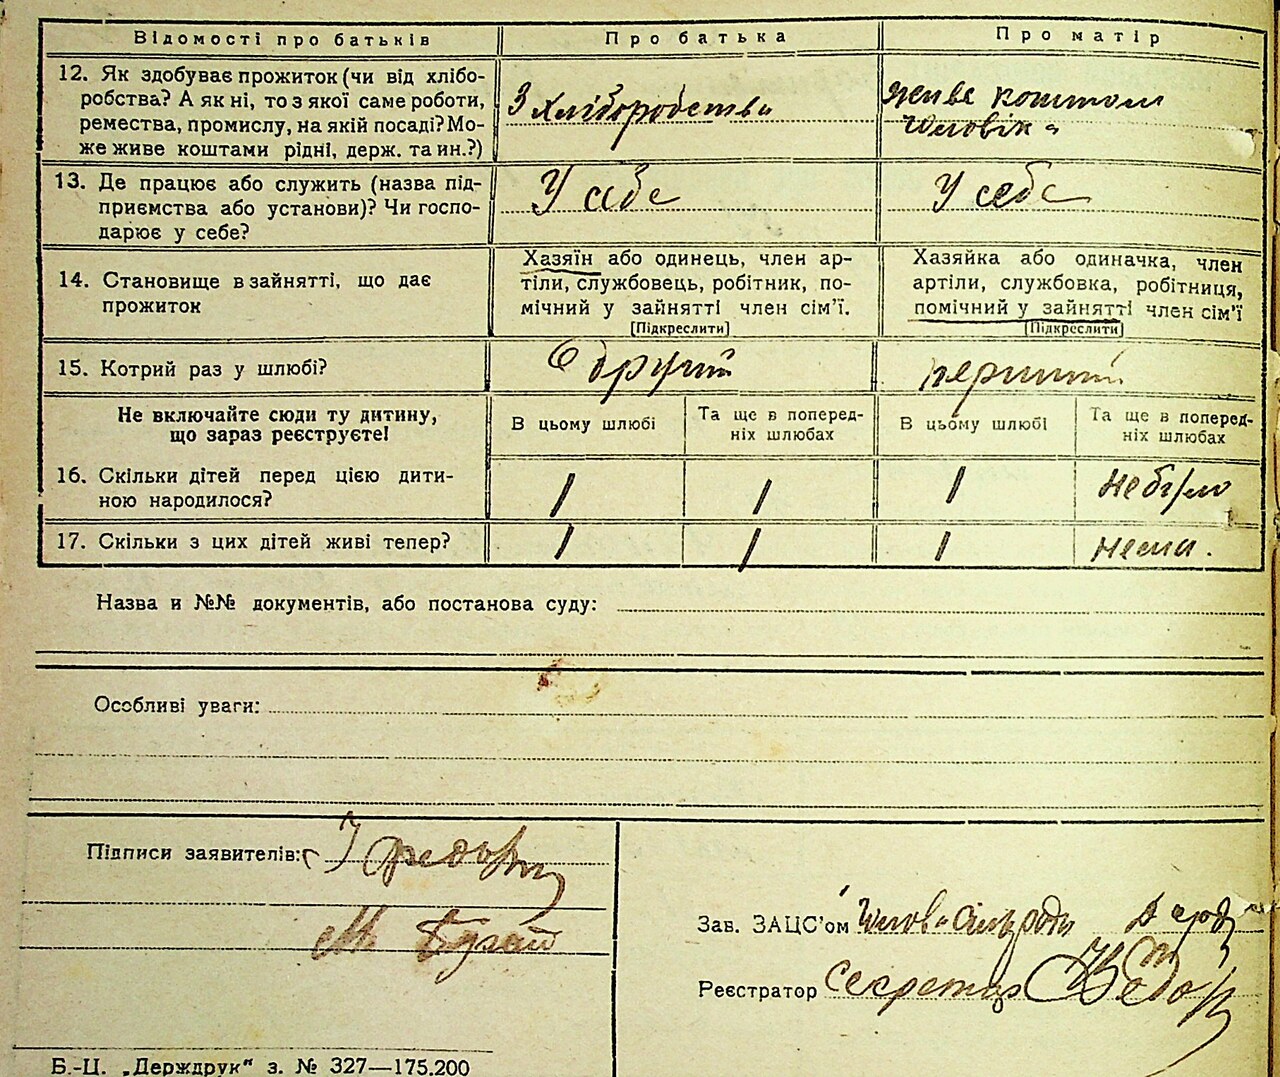 Відомості про батьків
Про батька
Про матір
12. Як здобуває прожиток (чи від хлібо-
робства? А як ні, то з якої саме роботи,
ремества, промислу, на якій посаді? Мо-
же живе коштами рідні, держ. та ин.?)
З хліборобства
живе коштом
чоловіка
13. Де працює або служить (назва під-
приємства або установи)? Чи госпо-
дарює у себе?
У себе
У себе
14. Становище в зайнятті, що дає
прожиток
Хазяїн або одинець, член ар-
тілі, службовець, робітник, по-
мічний у зайнятті член сім'ї.
[Підкреслити]
Хазяйка або одиначка, член
артілі, службовка, робітниця,
помічний у зайнятті член сім'ї
[Підкреслити]
15. Котрий раз у шлюбі?
другий
перший
Не включайте сюди ту дитину,
що зараз реєструєте!
В цьому шлюбі
Та ще в поперед-
ніх шлюбах
В цьому шлюбі
Та ще в поперед-
ніх шлюбах
16. Скільки дітей перед цією дити-
ною народилося?
1
1
1
не було
17. Скільки з цих дітей живі тепер?
1
1
1
нема.
Назва и №№ документів, або постанова суду:
Особливі уваги:
Підписи заявителів:
М Бугай
Зав. ЗАЦС'ом Голова Сільради
Реєстратор Секретар
Б.-Ц. „Держдрук“ з. № 327—175.200